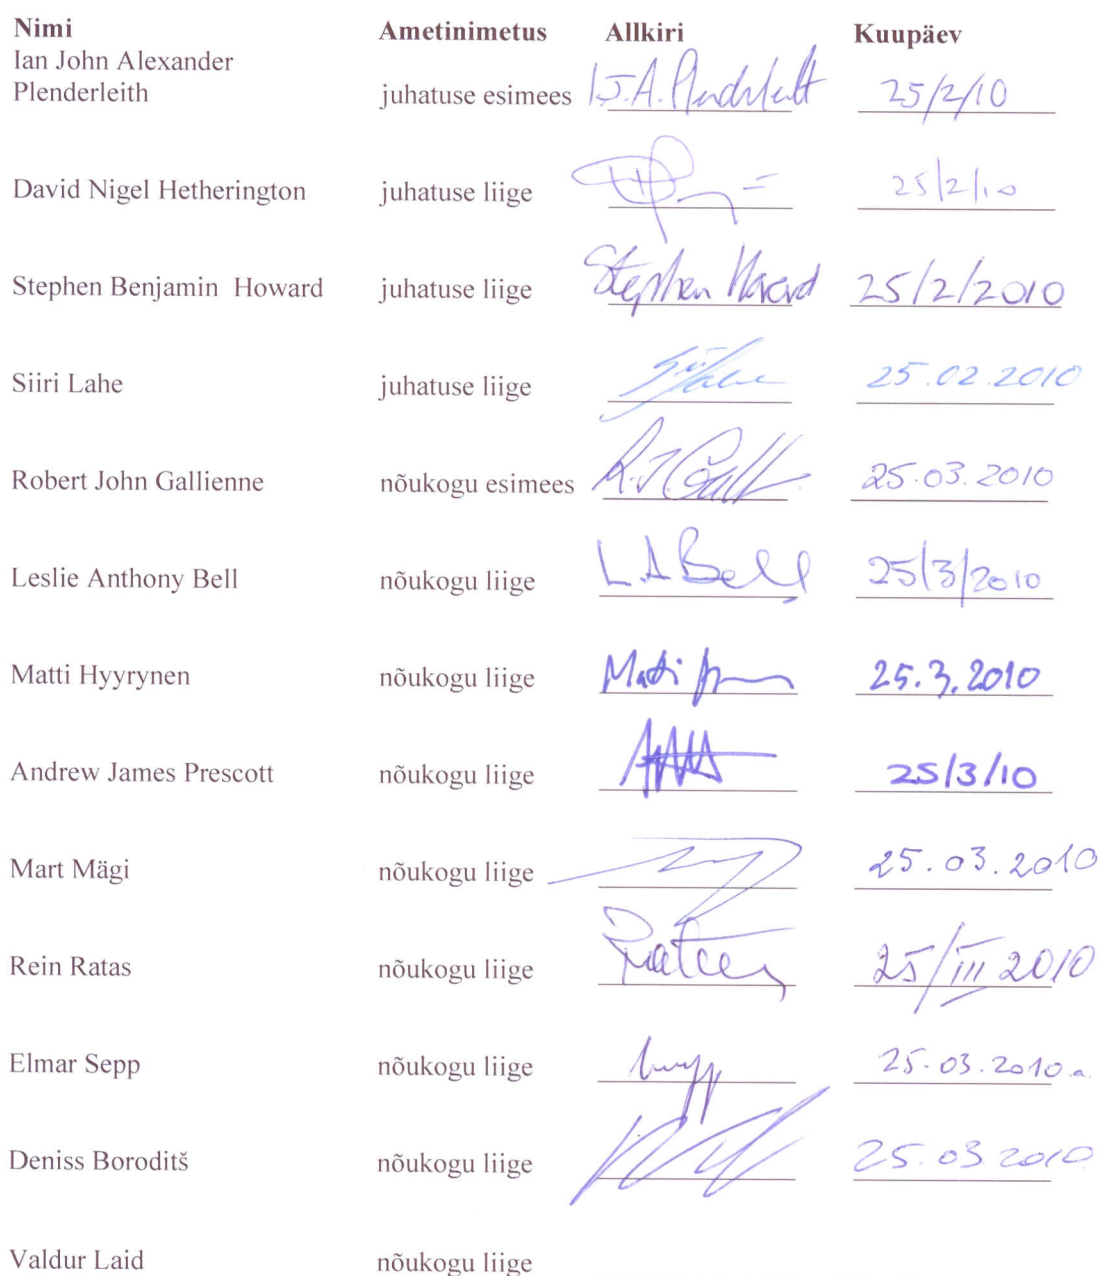 Nimi Ametinimetus Allkiri Kuupäev
Ian John Alexander
Plenderleith juhatuse esimees I.J.A. Plenderleith 25/2/10
David Nigel Hetherington juhatuse liige 25/2/10
Stephen Benjamin Howard juhatuse liige Stephen Howard 25/2/2010
Siiri Lahe juhatuse liige 25.02.2010
Robert John Gallienne nõukogu esimees 25.03.2010
Leslie Anthony Bell nõukogu liige L A Bell 25/3/2010
Matti Hyyrynen nõukogu liige Matti 25.3.2010
Andrew James Prescott nõukogu liige 25/3/10
Mart Mägi nõukogu liige 25.03.2010
Rein Ratas nõukogu liige 25/III 2010
Elmar Sepp nõukogu liige 25.03.2010.a.
Deniss Boroditš nõukogu liige 25.03.2010
Valdur Laid nõukogu liige